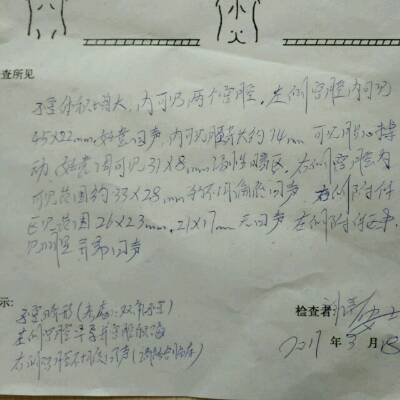 查所见
子宫体积增大，内可见两个宫腔，左侧宫腔内可见
45X22mm 妊囊回声，内可见胚芽大约14mm 可见胎心搏
动，妊囊周可见31X8mm 液性暗区，右侧宫腔内
可见范围约33X28mm 回声 右侧附件
区见范围26X23mm，21X17mm 无回声 左侧附件区未
见明显异常回声
示：
子宫畸形（考虑：双 子宫）
左侧宫腔早孕并宫腔积液
右侧宫腔 回声（请结合临床）
检查者：
2017 年 3 月 18